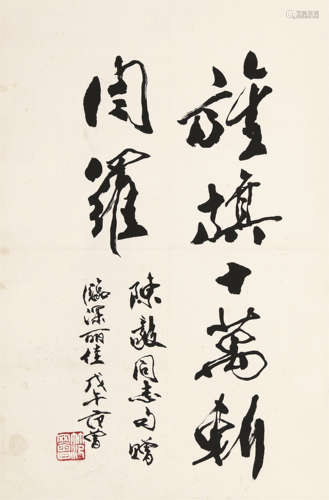 旌旗十萬斬
閻羅
陳毅同志句贈
臨深丽佳 戊午 范曾